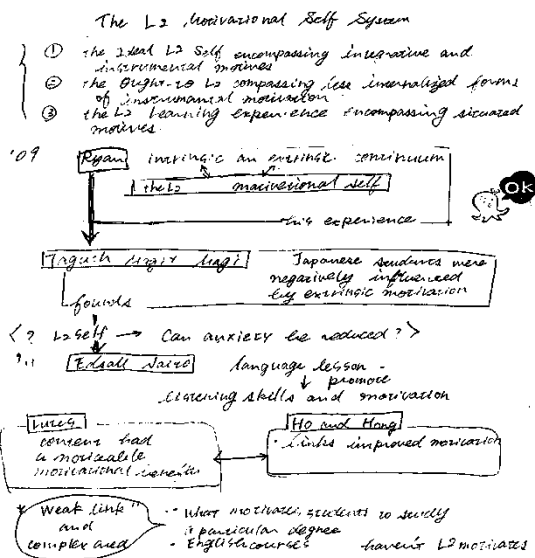 The L2 Motivational Self System
① the Ideal L2 Self encompassing integrative and
instrumental motives
② the Ought-to L2 compassing less internalized forms
of instrumental motivation
③ the L2 Learning experience encompassing situated
motives.
'09 Ryan intringic an extringic continuum
the L2 motivational self
this experience
Taguch Magir Magi Japanese students were
negatively influenced
by extringic motivation
founds
Ok
< ? L2 self → Can anxiety be reduced? >
'11 Edsall Saito language lesson -
promote
listening skills and motivation
content had
a noticeable
motivational benefits
Ho and Hong
· Links improved motivation
* "Weak link"
and
complex area
· What motivates students to study
a particular degree
· English courses haven't L2 motivates